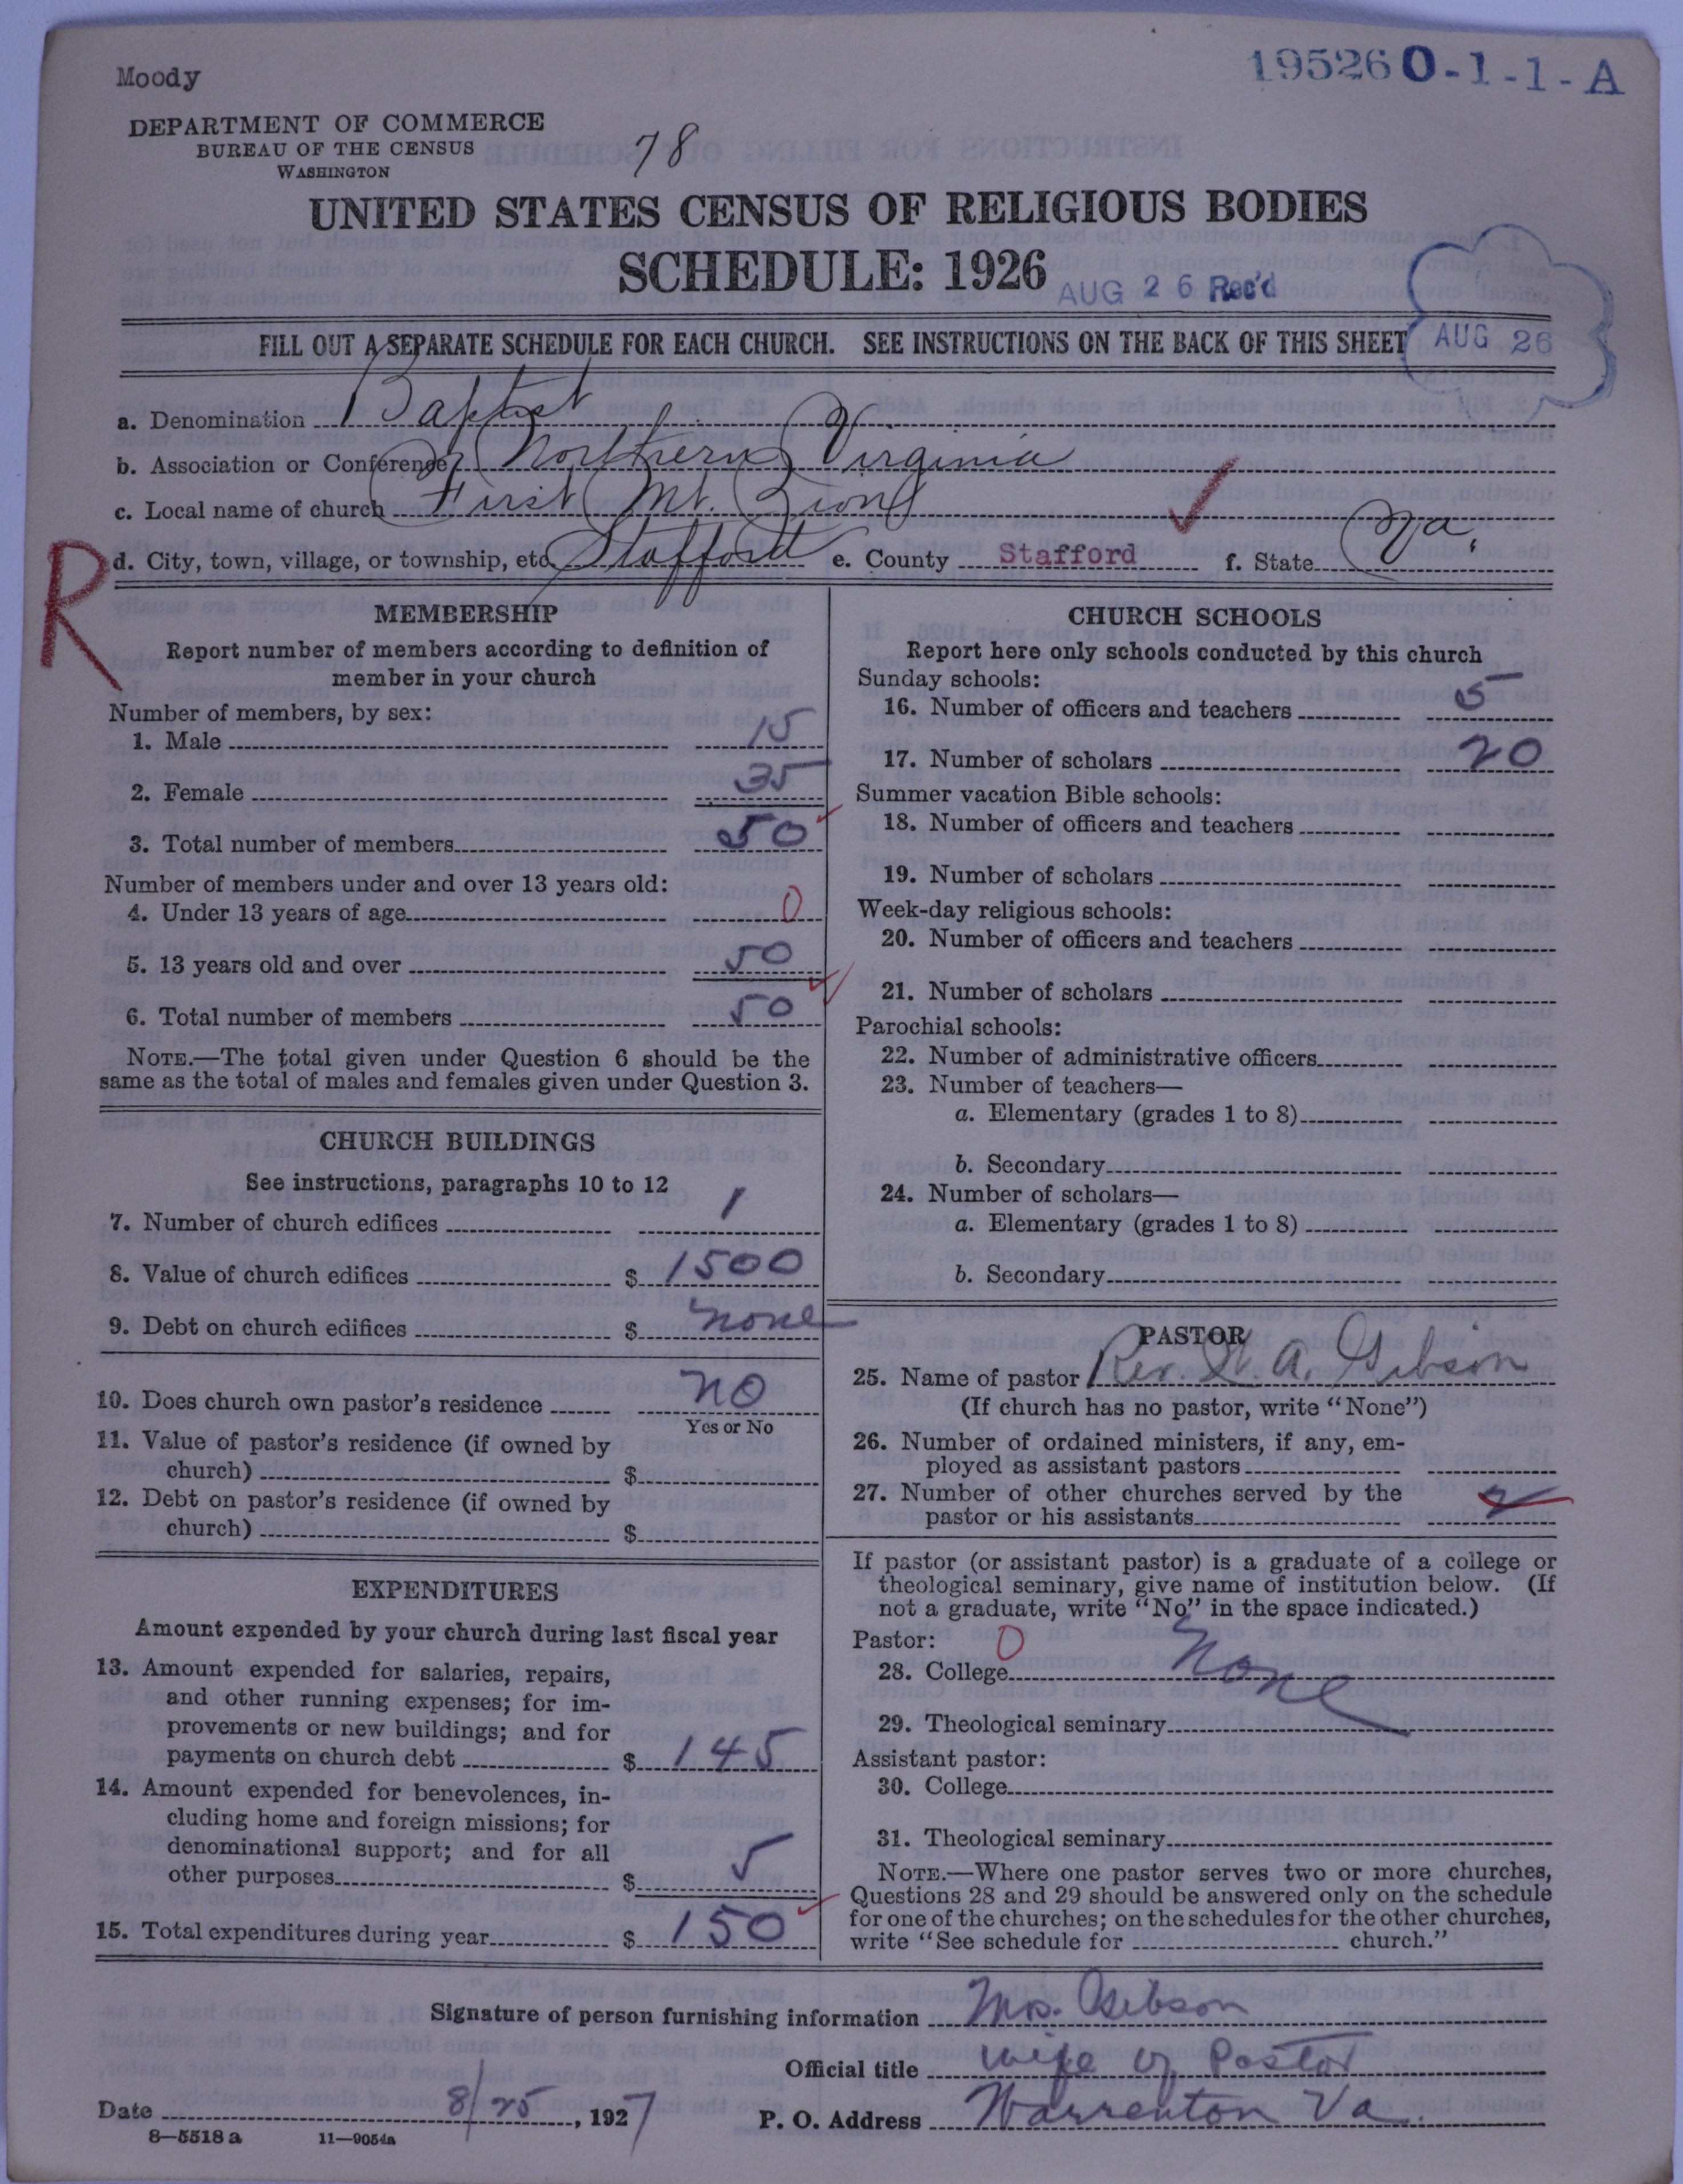 Moody
195260-1-1-A
DEPARTMENT OF COMMERCE
BUREAU OF THE CENSUS
WASHINGTON
78
UNITED STATES CENSUS OF RELIGIOUS BODIES
SCHEDULE: 1926
AUG 26 Rec'd
AUG 26
FILL OUT A SEPARATE SCHEDULE FOR EACH CHURCH. SEE INSTRUCTIONS ON THE BACK OF THIS SHEET
a. Denomination Baptist
b. Association or Conference Northern Virginia
c. Local name of church First Mt. Zion
R
d. City, town, village, or township, etc. Stafford e. County Stafford f. State Va.
MEMBERSHIP
Report number of members according to definition of
member in your church
Number of members, by sex:
1. Male 15
2. Female 35
3. Total number of members 50
Number of members under and over 13 years old:
4. Under 13 years of age 0
5. 13 years old and over 50
6. Total number of members 50
NOTE.—The total given under Question 6 should be the
same as the total of males and females given under Question 3.
CHURCH BUILDINGS
See instructions, paragraphs 10 to 12
7. Number of church edifices 1
8. Value of church edifices $ 1500
9. Debt on church edifices $ none
10. Does church own pastor's residence no
Yes or No
11. Value of pastor's residence (if owned by
church) $
12. Debt on pastor's residence (if owned by
church) $
EXPENDITURES
Amount expended by your church during last fiscal year
13. Amount expended for salaries, repairs,
and other running expenses; for im-
provements or new buildings; and for
payments on church debt $ 145
14. Amount expended for benevolences, in-
cluding home and foreign missions; for
denominational support; and for all
other purposes $ 5
15. Total expenditures during year $ 150
CHURCH SCHOOLS
Report here only schools conducted by this church
Sunday schools:
16. Number of officers and teachers 5
17. Number of scholars 20
Summer vacation Bible schools:
18. Number of officers and teachers
19. Number of scholars
Week-day religious schools:
20. Number of officers and teachers
21. Number of scholars
Parochial schools:
22. Number of administrative officers
23. Number of teachers—
a. Elementary (grades 1 to 8)
b. Secondary
24. Number of scholars—
a. Elementary (grades 1 to 8)
b. Secondary
PASTOR
25. Name of pastor Rev. A. Gibson
(If church has no pastor, write "None")
26. Number of ordained ministers, if any, em-
ployed as assistant pastors
27. Number of other churches served by the
pastor or his assistants 2
If pastor (or assistant pastor) is a graduate of a college or
theological seminary, give name of institution below. (If
not a graduate, write "No" in the space indicated.)
Pastor: 0
28. College None
29. Theological seminary
Assistant pastor:
30. College
31. Theological seminary
NOTE.—Where one pastor serves two or more churches,
Questions 28 and 29 should be answered only on the schedule
for one of the churches; on the schedules for the other churches,
write "See schedule for church."
Signature of person furnishing information Mrs. Gibson
Official title wife of Pastor
Date 8/25, 1927 P. O. Address Warrenton Va.
8—5518 a 11—9054a